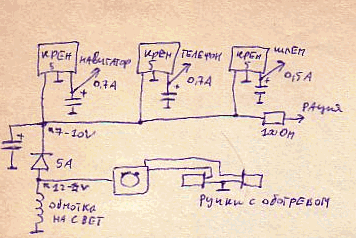 КРЕН
5
НАВИГАТОР
0,7А
КРЕН
5
ТЕЛЕФОН
0,7А
КРЕН
5
ШЛЕМ
0,5А
РАЦИЯ
120 Ом
+
+
+
+
5А
ОБМОТКА
НА СВЕТ
РУЧКИ С ОБОГРЕВОМ